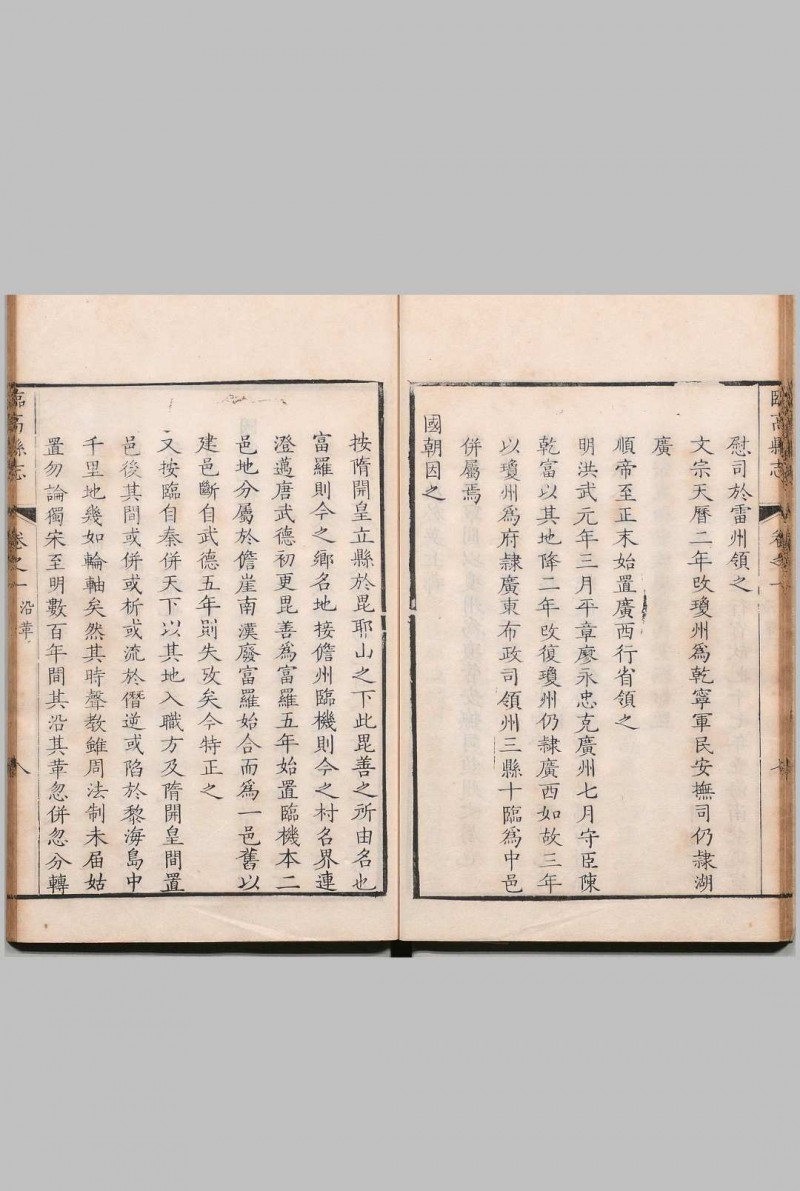 慰司於雷州領之
文宗天曆二年改瓊州為乾寧軍民安撫司仍隷湖
廣
順帝至正末始置廣西行省領之
明洪武元年三月平章廖永忠克廣州七月守臣陳
乾富以其地降二年改復瓊州仍隷廣西如故三年
以瓊州爲府隷廣東布政司領州三縣十臨爲中邑
併屬焉
國朝因之
按隋開皇立縣於毘耶山之下此毘善之所由名也
富羅則今之鄉名地接儋州臨機則今之村名界連
澄邁唐武德初更毘善爲富羅五年始置臨機本二
邑地分屬於儋崖南漢廢富羅始合而爲一邑舊以
建邑斷自武德五年則失攷矣今特正之
又按臨自秦併天下以其地入職方及隋開皇間置
邑後其間或併或析或流於僭逆或陷於黎海島中
千里地幾如輪軸矣然其時聲教雖周法制未届姑
置勿論獨宋至明數百年間其沿其革忽併忽分轉
臨高縣志
卷之一
沿革
八